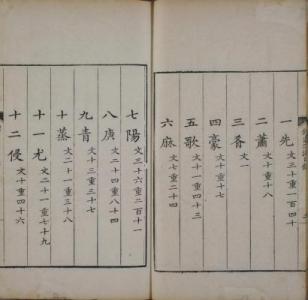 一先 文三十一重百四十
二蕭 文十重十八
三肴 文一
四豪 文十重三十
五歌 文十一重四十三
六麻 文七重二十四
七陽 文三十六重二百十一
八庚 文二十四重八十四
九青 文十三重三十七
十蒸 文二十一重三十八
十一尤 文二十一重七十九
十二侵 文十重四十六